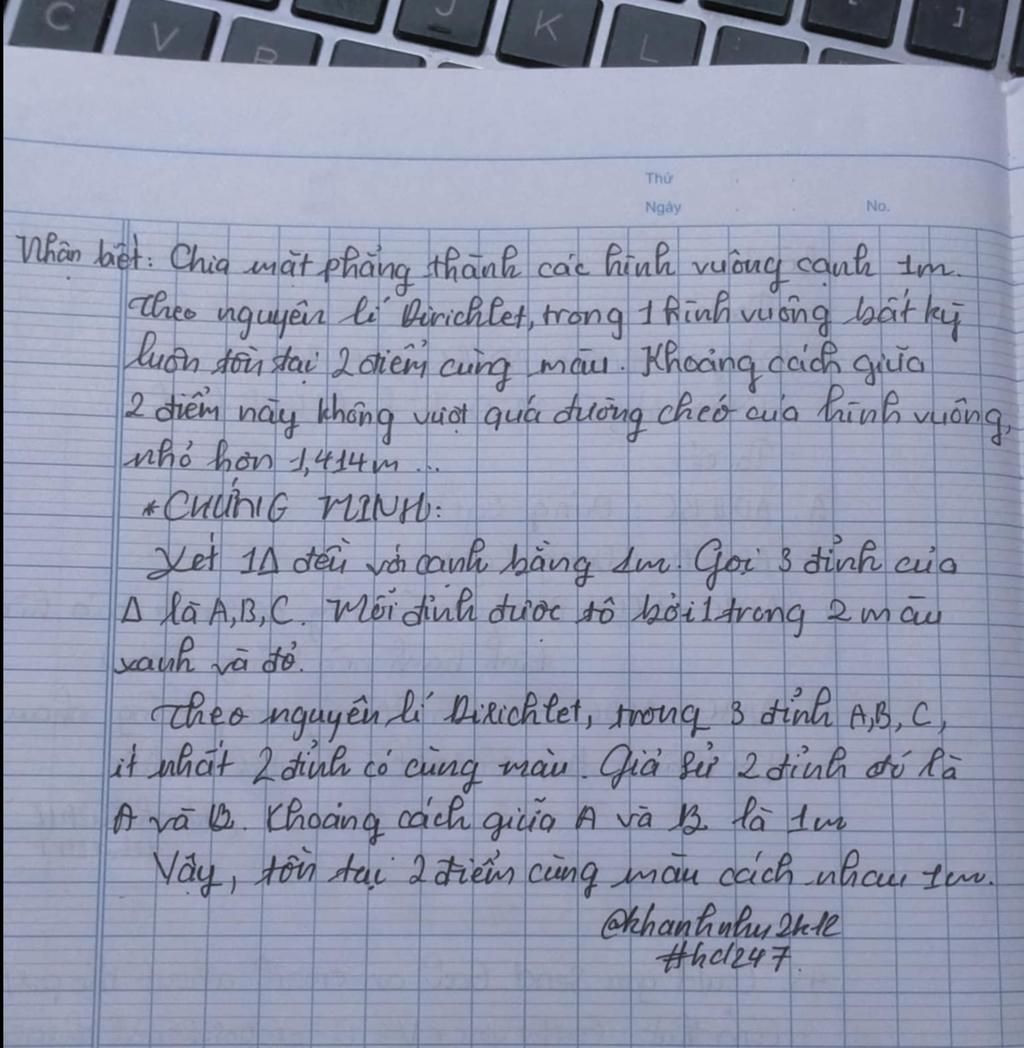 C V B J K L : [ ]
Thứ
Ngày No.
Nhận biết: Chia mặt phẳng thành các hình vuông cạnh 1m.
Theo nguyên lí Dirichlet, trong 1 hình vuông bất kỳ
luôn tồn tại 2 điểm cùng màu. Khoảng cách giữa
2 điểm này không vượt quá đường chéo của hình vuông,
nhỏ hơn 1,414m...
* CHỨNG MINH:
Xét 1Δ đều với cạnh bằng 1m. Gọi 3 đỉnh của
Δ là A,B,C. Mỗi đỉnh được tô bởi 1 trong 2 màu
xanh và đỏ.
Theo nguyên lí Dirichlet, trong 3 đỉnh A,B,C,
ít nhất 2 đỉnh có cùng màu. Giả sử 2 đỉnh đó là
A và B. Khoảng cách giữa A và B là 1m
Vậy, tồn tại 2 điểm cùng màu cách nhau 1m.
@khanhnhu2k12
#hd247.